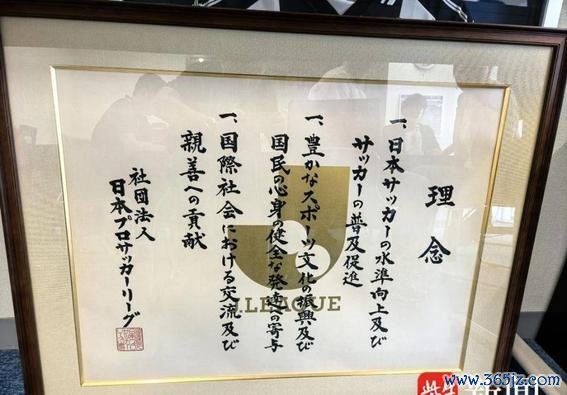 理念
一、日本サッカーの水準向上及び
サッカーの普及促進
一、豊かなスポーツ文化の振興及び
国民の心身の健全な発達への寄与
一、国際社会における交流及び
親善への貢献
社団法人
日本プロサッカーリーグ
J.LEAGUE
新闻
www.365jz.com